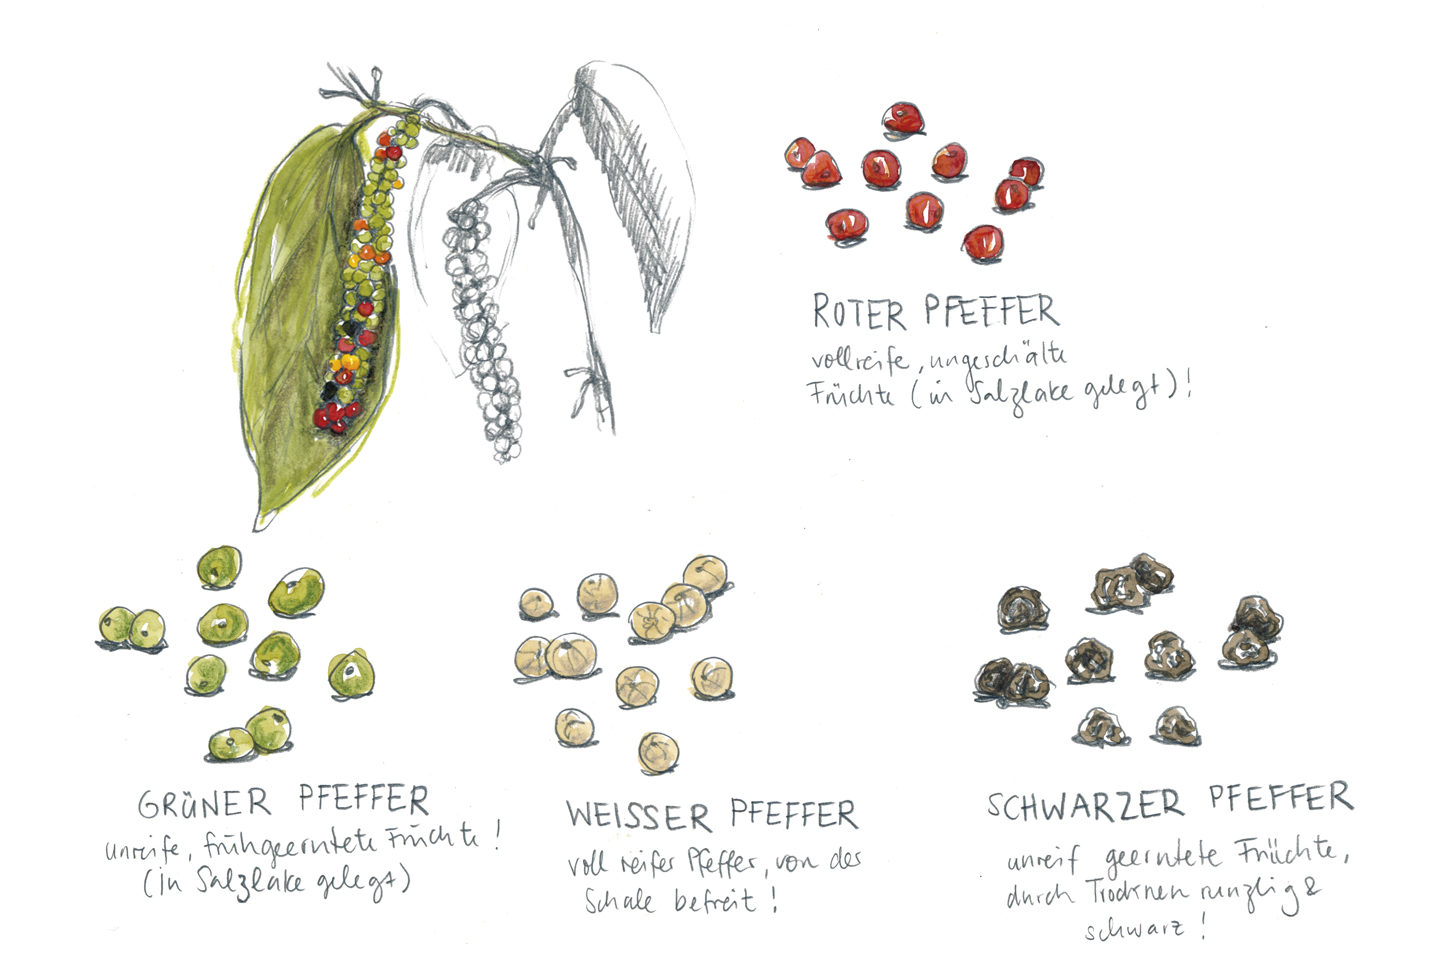 ROTER PFEFFER
vollreife, ungeschälte
Früchte (in Salzlake gelegt)!
GRÜNER PFEFFER
unreife, frühgeerntete Früchte!
(in Salzlake gelegt)
WEISSER PFEFFER
voll reifer Pfeffer, von der
Schale befreit!
SCHWARZER PFEFFER
unreif geerntete Früchte,
durch Trocknen runzlig &
schwarz!